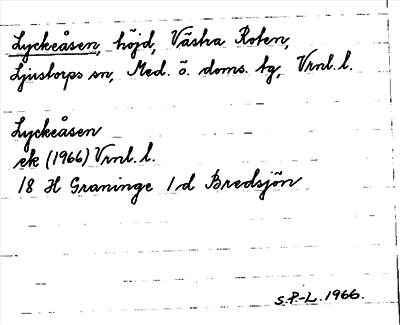 Lyckeåsen, höjd, Västra Roten,
Ljustorps sn, Med. ö. doms. tg, Vrnl. l.
Lyckeåsen
ek (1966) Vrnl. l.
18 H Graninge 1d Bredsjön
S.P.-L. 1966.